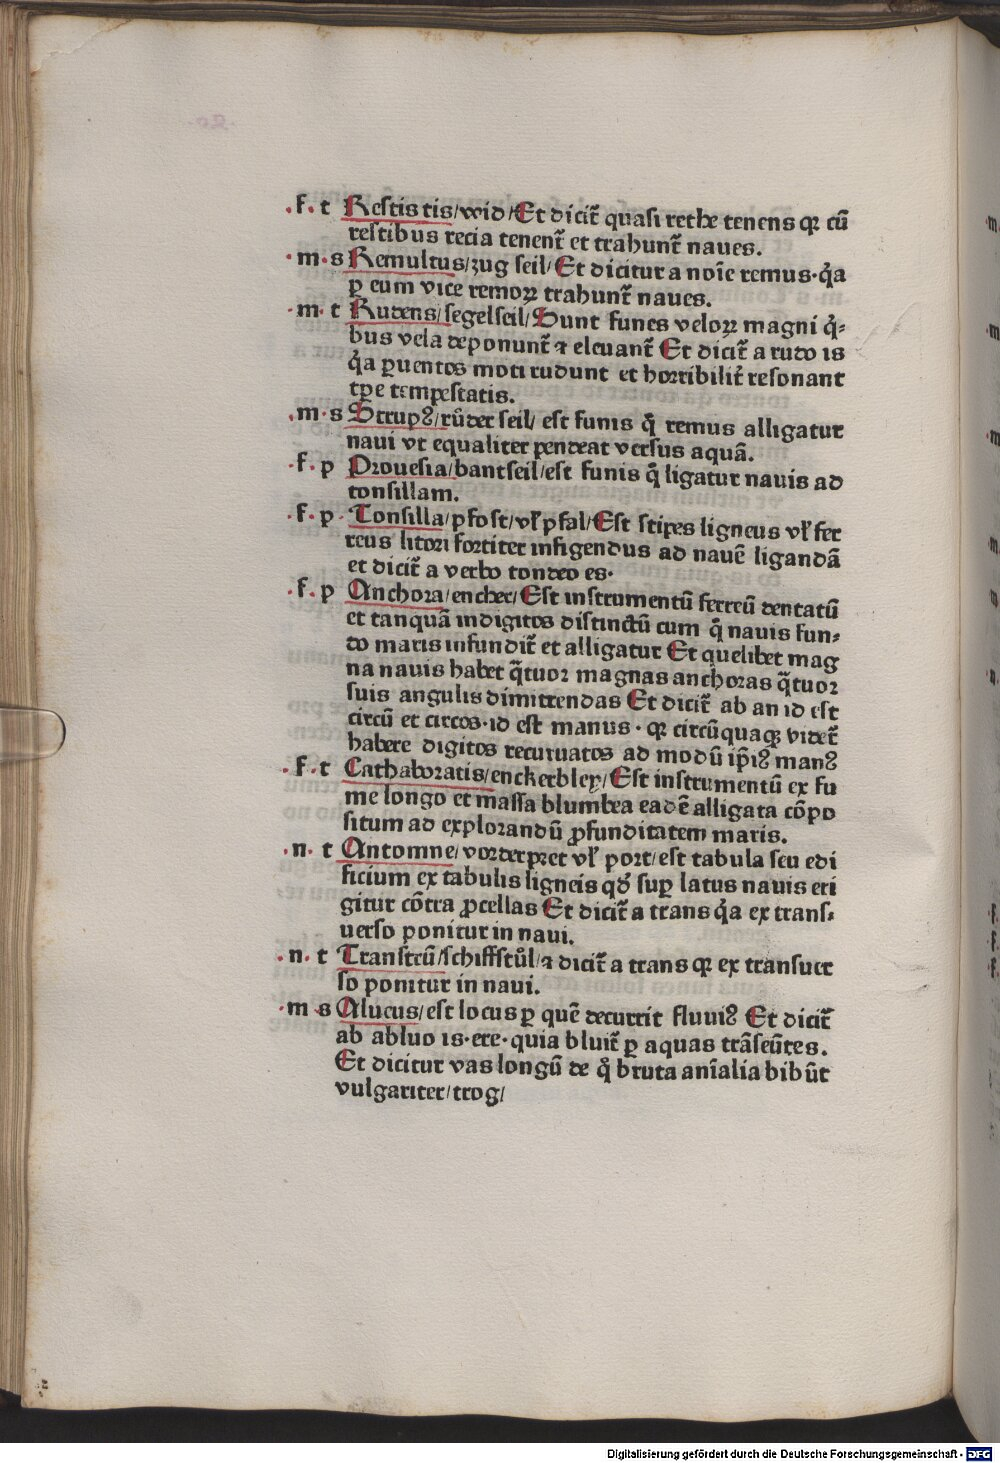 .f.t Restis tis/wid/Et dicit᷑ quasi rethe tenens qꝛ cū
restibus recia tenent᷑ et trahunt᷑ naues.
.m.s Remultus/zug seil/Et dicitur a noīe remus.q̇a
ꝑ eum vice remoꝝ trahunt᷑ naues.
.m.t Rudens/segelseil/Sunt funes veloꝝ magni q̇-
bus vela deponunt᷑ ⁊ eleuant᷑ Et dicit᷑ a rudo is
q̇a ꝑ uentos moti rudunt et horribilit᷑ resonant
tꝑe tempestatis.
.m.s Strupꝰ/růder seil/ est funis q̄ remus alligatur
naui vt equaliter pendeat versus aquā.
.f.p Prouesia/bantseil/est funis q̄ ligatur nauis ad
tonsillam.
.f.p Tonsilla/pfost/vl̓ pfal/Est stipes ligneus vl̓ fer
reus litori fortiter infigendus ad nauē ligandā
et dicit᷑ a verbo tondeo es.
.f.p Anchora/encher/Est instrumentū ferreū dentatū
et tanquā indigitos distinctū cum q̄ nauis fun-
do maris infundit᷑ et alligatur Et quelibet mag
na nauis habet q̄tuor magnas anchoras q̄tuor
suis angulis dimittendas Et dicit᷑ ab an id est
circū et circos.id est manus. qꝛ circūquaqꝫ videt᷑
habere digitos recuruatos ad modū ip̄iꝰ manꝰ
.f.t Cathaboratis/enckerbley/Est instrumentū ex fu
me longo et massa blumbea eadē alligata cōpo
situm ad explorandū ꝓfunditatem maris.
.n.t Antomne/vorderpret vl̓ port/est tabula seu edi
ficium ex tabulis ligneis qd̓ suꝑ latus nauis eri
gitur cōtra ꝓcellas Et dicit᷑ a trans q̇a ex trans-
uerso ponitur in naui.
.n.t Transtrū/schiffstůl/⁊ dicit᷑ a trans qꝛ ex transuer
so ponitur in naui.
.m.s Alueus/est locus ꝑ quē decurrit fluuiꝰ Et dicit᷑
ab abluo is.ere.quia bluit᷑ ꝑ aquas trāseūtes.
Et dicitur vas longū de q̊ bruta anīalia bibūt
vulgariter/trog/
Digitalisierung gefördert durch die Deutsche Forschungsgemeinschaft - DFG